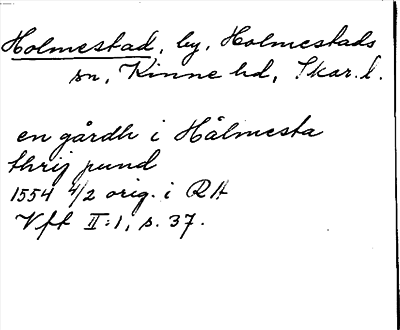 Holmestad, by, Holmestads
sn, Kinne hd, Skar. l.
en gårdh i Hålmesta
thrij pund
1554 4/2 orig. i RA
Vft II:1, s. 37.